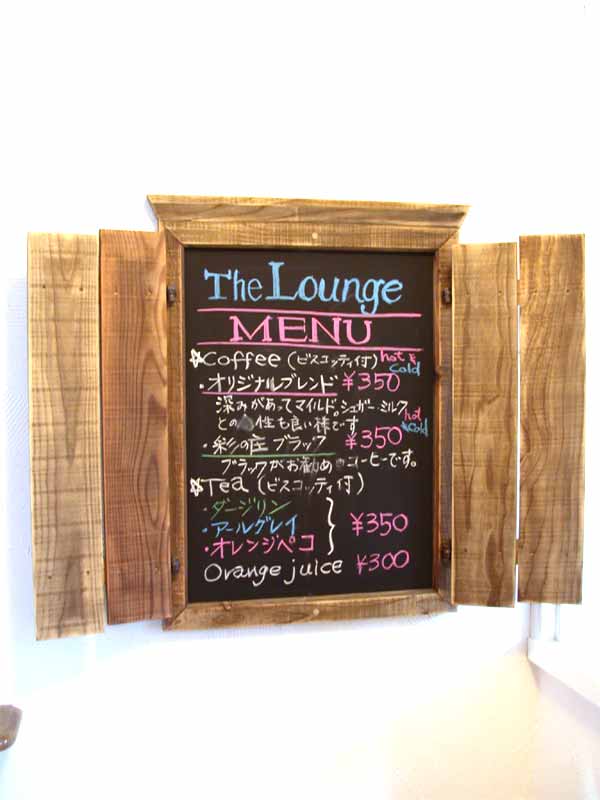 The Lounge
MENU
☆Coffee (ビスコッティ付) hot & cold
・オリジナルブレンド ¥350
深みがあってマイルド。シュガー・ミルク hot & cold
との 性も良い様です
・彩の庄 ブラック ¥350
ブラックがお勧め コーヒーです。
☆Tea (ビスコッティ付)
・ダージリン
・アールグレイ ¥350
・オレンジペコ
Orange juice ¥300